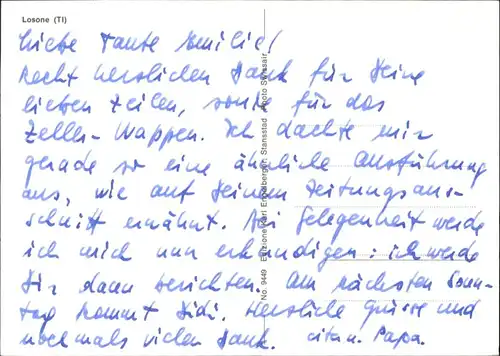 Losone (TI)
Liebe Tante Emilie!
Recht herzlichen Dank für Deine
lieben Zeilen, sowie für das
Zeller-Wappen. Ich dachte mir
gerade so eine ähnliche Ausführung
aus, wie auf Deinem Zeitungsaus-
schnitt erwähnt. Bei Gelegenheit werde
ich mich nun erkundigen: ich werde
Dir dann berichten. Am nächsten Sonn-
tag kommt Didi. Herzliche Grüsse und
nochmals vielen Dank. Papa.
No. 9449 Edizione Karl Engelberger, Stansstad Photo Swissair